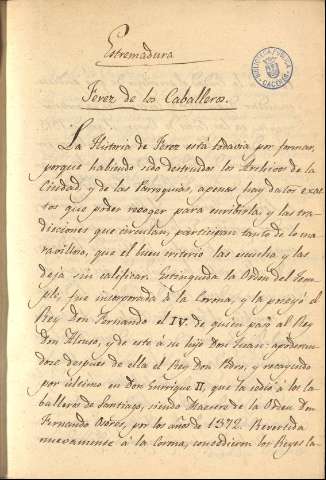 Estremadura
BIBLIOTECA PUBLICA
CACERES
Jerez de los Caballeros.
La Historia de Jerez está todavia por formar,
porque habiendo sido destruidos los Archivos de la
Ciudad, y de las Parroquias, apenas hay datos exac-
tos que poder recoger para escribirla, y las tra-
diciones que circulan, participan tanto de lo ma-
ravilloso, que el buen criterio las escucha y las
deja sin calificar. Estinguida la Orden del Tem-
ple, fue incorporada á la Corona, y la poseyó el
Rey Don Fernando el IV. de quien pasó al Rey
Don Alonso, y de este á su hijo Don Juan: apoderan-
dose despues de ella el Rey Don Pedro, y recayendo
por ultimo en Don Enrique II, que la cedió á los Ca-
balleros de Santiago, siendo Maestre de la Orden Don
Fernando Osores, por los años de 1372. Revertida
nuevamente á la Corona, concedieron los Reyes la-